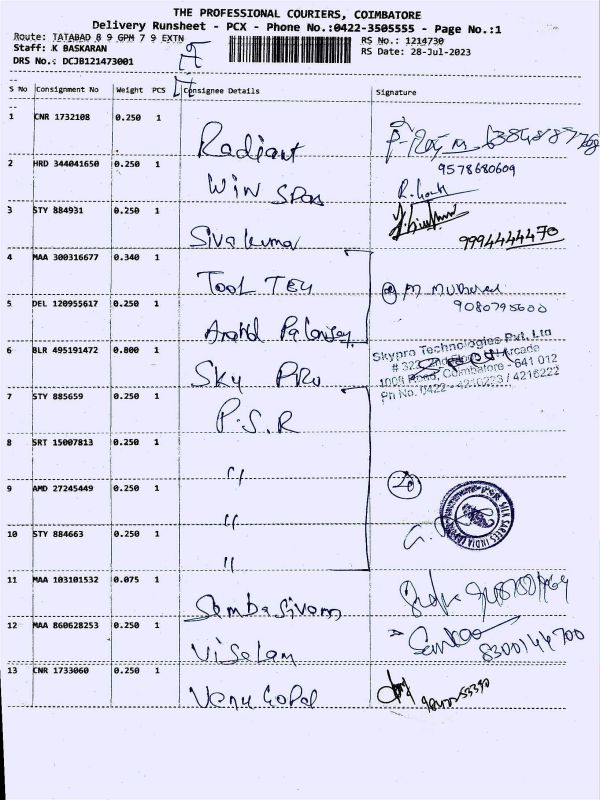 THE PROFESSIONAL COURIERS, COIMBATORE
Delivery Runsheet - PCX - Phone No.:0422-3505555 - Page No.:1
Route: TATABAD 8 9 GPM 7 9 EXTN RS No.: 1214730
Staff: K BASKARAN RS Date: 28-Jul-2023
DRS No.: DCJB121473001
S No Consignment No Weight PCS Consignee Details Signature
1 CNR 1732108 0.250 1 Radiant
9578680609
2 HRD 344041650 0.250 1 Win Spas
3 STY 884931 0.250 1 Sivakumar
9994444470
4 MAA 300316677 0.340 1 Tool Tey
9080795600
5 DEL 120955617 0.250 1 Anand
6 BLR 495191472 0.800 1 Sky Pro
Skypro Technologies Pvt. Ltd
# 322, 2nd Arcade
100ft Road, Coimbatore - 641 012
Ph No. 0422 - 4210223 / 4216222
7 STY 885659 0.250 1 P.S.R
8 SRT 15007813 0.250 1 "
9 AMD 27245449 0.250 1 "
SILK SAREES INDIA
10 STY 884663 0.250 1 "
11 MAA 103101532 0.075 1 Sambasivam
12 MAA 860628253 0.250 1 Visalam
8300144700
13 CNR 1733060 0.250 1 Venu Gopal